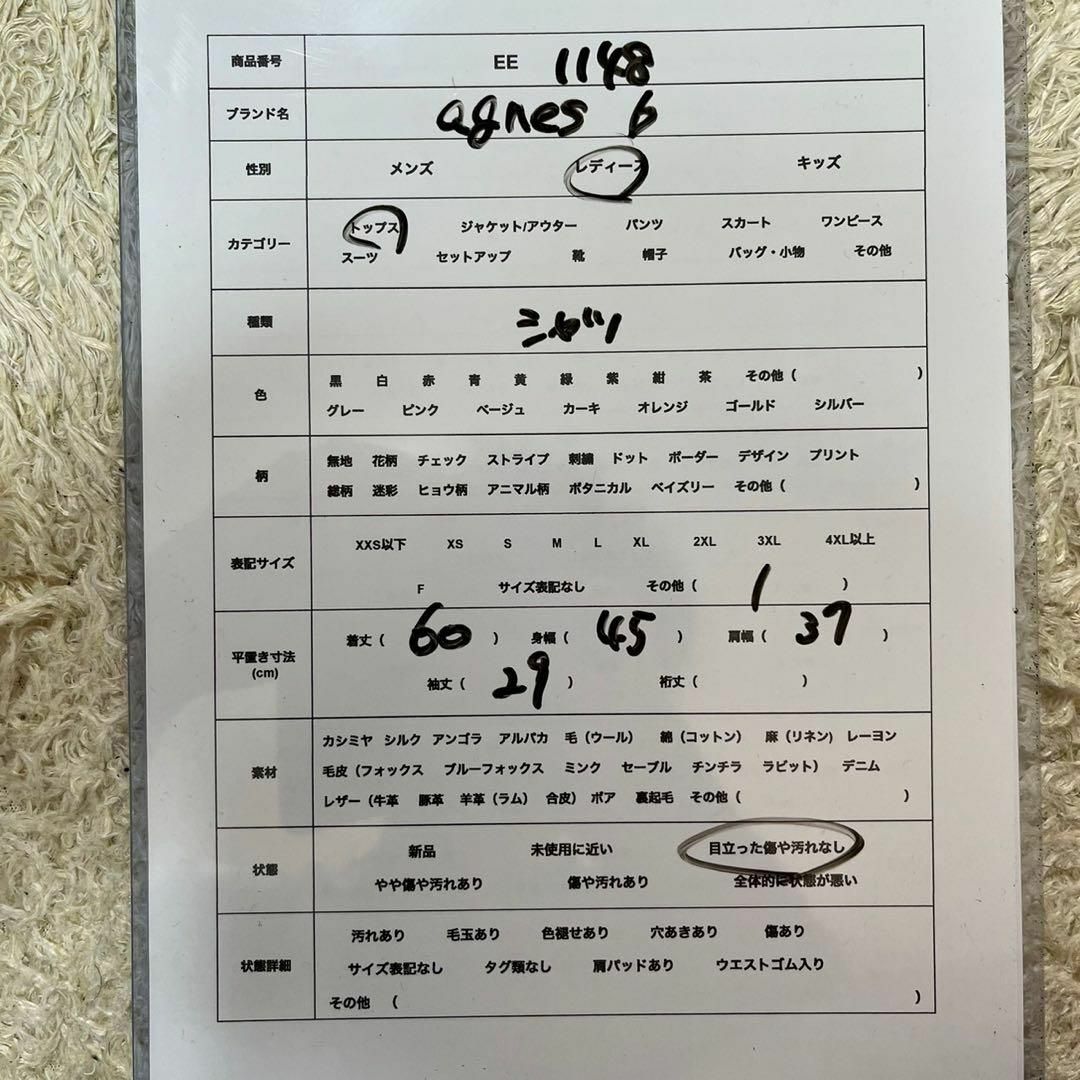 商品番号 EE 1148
ブランド名 agnes b
性別 メンズ レディース キッズ
カテゴリー トップス ジャケット/アウター パンツ スカート ワンピース
スーツ セットアップ 靴 帽子 バッグ・小物 その他
種類 シャツ
色 黒 白 赤 青 黄 緑 紫 紺 茶 その他 ( )
グレー ピンク ベージュ カーキ オレンジ ゴールド シルバー
柄 無地 花柄 チェック ストライプ 刺繍 ドット ボーダー デザイン プリント
総柄 迷彩 ヒョウ柄 アニマル柄 ボタニカル ペイズリー その他 ( )
表記サイズ XXS以下 XS S M L XL 2XL 3XL 4XL以上
F サイズ表記なし その他 ( 1 )
平置き寸法 (cm) 着丈 ( 60 ) 身幅 ( 45 ) 肩幅 ( 37 )
袖丈 ( 29 ) 裄丈 ( )
素材 カシミヤ シルク アンゴラ アルパカ 毛 (ウール) 綿 (コットン) 麻 (リネン) レーヨン
毛皮 (フォックス ブルーフォックス ミンク セーブル チンチラ ラビット) デニム
レザー (牛革 豚革 羊革 (ラム) 合皮) ボア 裏起毛 その他 ( )
状態 新品 未使用に近い 目立った傷や汚れなし
やや傷や汚れあり 傷や汚れあり 全体的に状態が悪い
状態詳細 汚れあり 毛玉あり 色褪せあり 穴あきあり 傷あり
サイズ表記なし タグ類なし 肩パッドあり ウエストゴム入り
その他 ( )